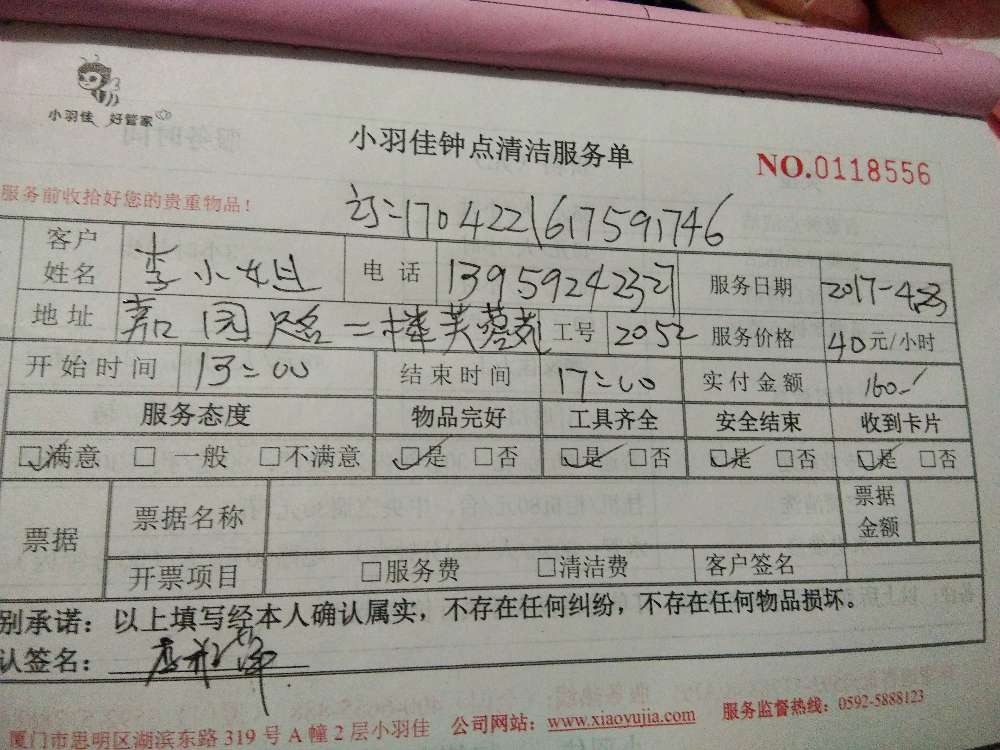 小羽佳 好管家
小羽佳钟点清洁服务单
NO.0118556
服务前收拾好您的贵重物品！
1704221617591746
客户姓名 李小姐 电话 13959242327 服务日期 2017-4-23
地址 嘉园路二楼芙蓉苑 工号 2052 服务价格 40元/小时
开始时间 13:00 结束时间 17:00 实付金额 160
服务态度 物品完好 工具齐全 安全结束 收到卡片
☑满意 □一般 □不满意 ☑是 □否 ☑是 □否 ☑是 □否 ☑是 □否
票据 票据名称 票据金额
开票项目 □服务费 □清洁费 客户签名
别承诺：以上填写经本人确认属实，不存在任何纠纷，不存在任何物品损坏。
认签名：
厦门市思明区湖滨东路 319 号 A 幢 2 层小羽佳 公司网站：www.xiaoyujia.com 服务监督热线：0592-5888123